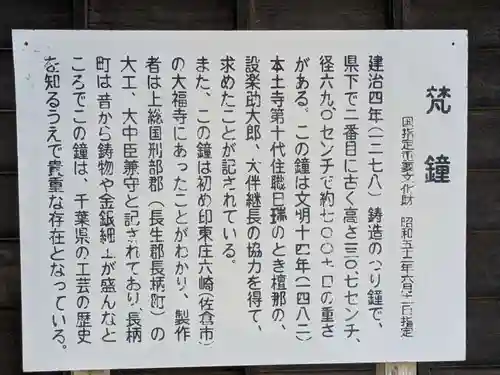 梵鐘
国指定重要文化財　昭和五十二年六月十一日指定
建治四年(一二七八)鋳造のつり鐘で、
県下で二番目に古く高さ一三〇.七センチ、
径六九.〇センチで約七〇〇キロの重さ
がある。この鐘は文明十四年(一四八二)
本土寺第十代住職日瑞のとき檀那の、
設楽助太郎、大伴継長の協力を得て、
求めたことが記されている。
また、この鐘は初め印東庄六崎(佐倉市)
の大福寺にあったことがわかり、製作
者は上総国刑部郡(長生郡長柄町)の
大工、大中臣兼守と記されており、長柄
町は昔から鋳物や金銀細工が盛んなと
ころでこの鐘は、千葉県の工芸の歴史
を知るうえで貴重な存在となっている。